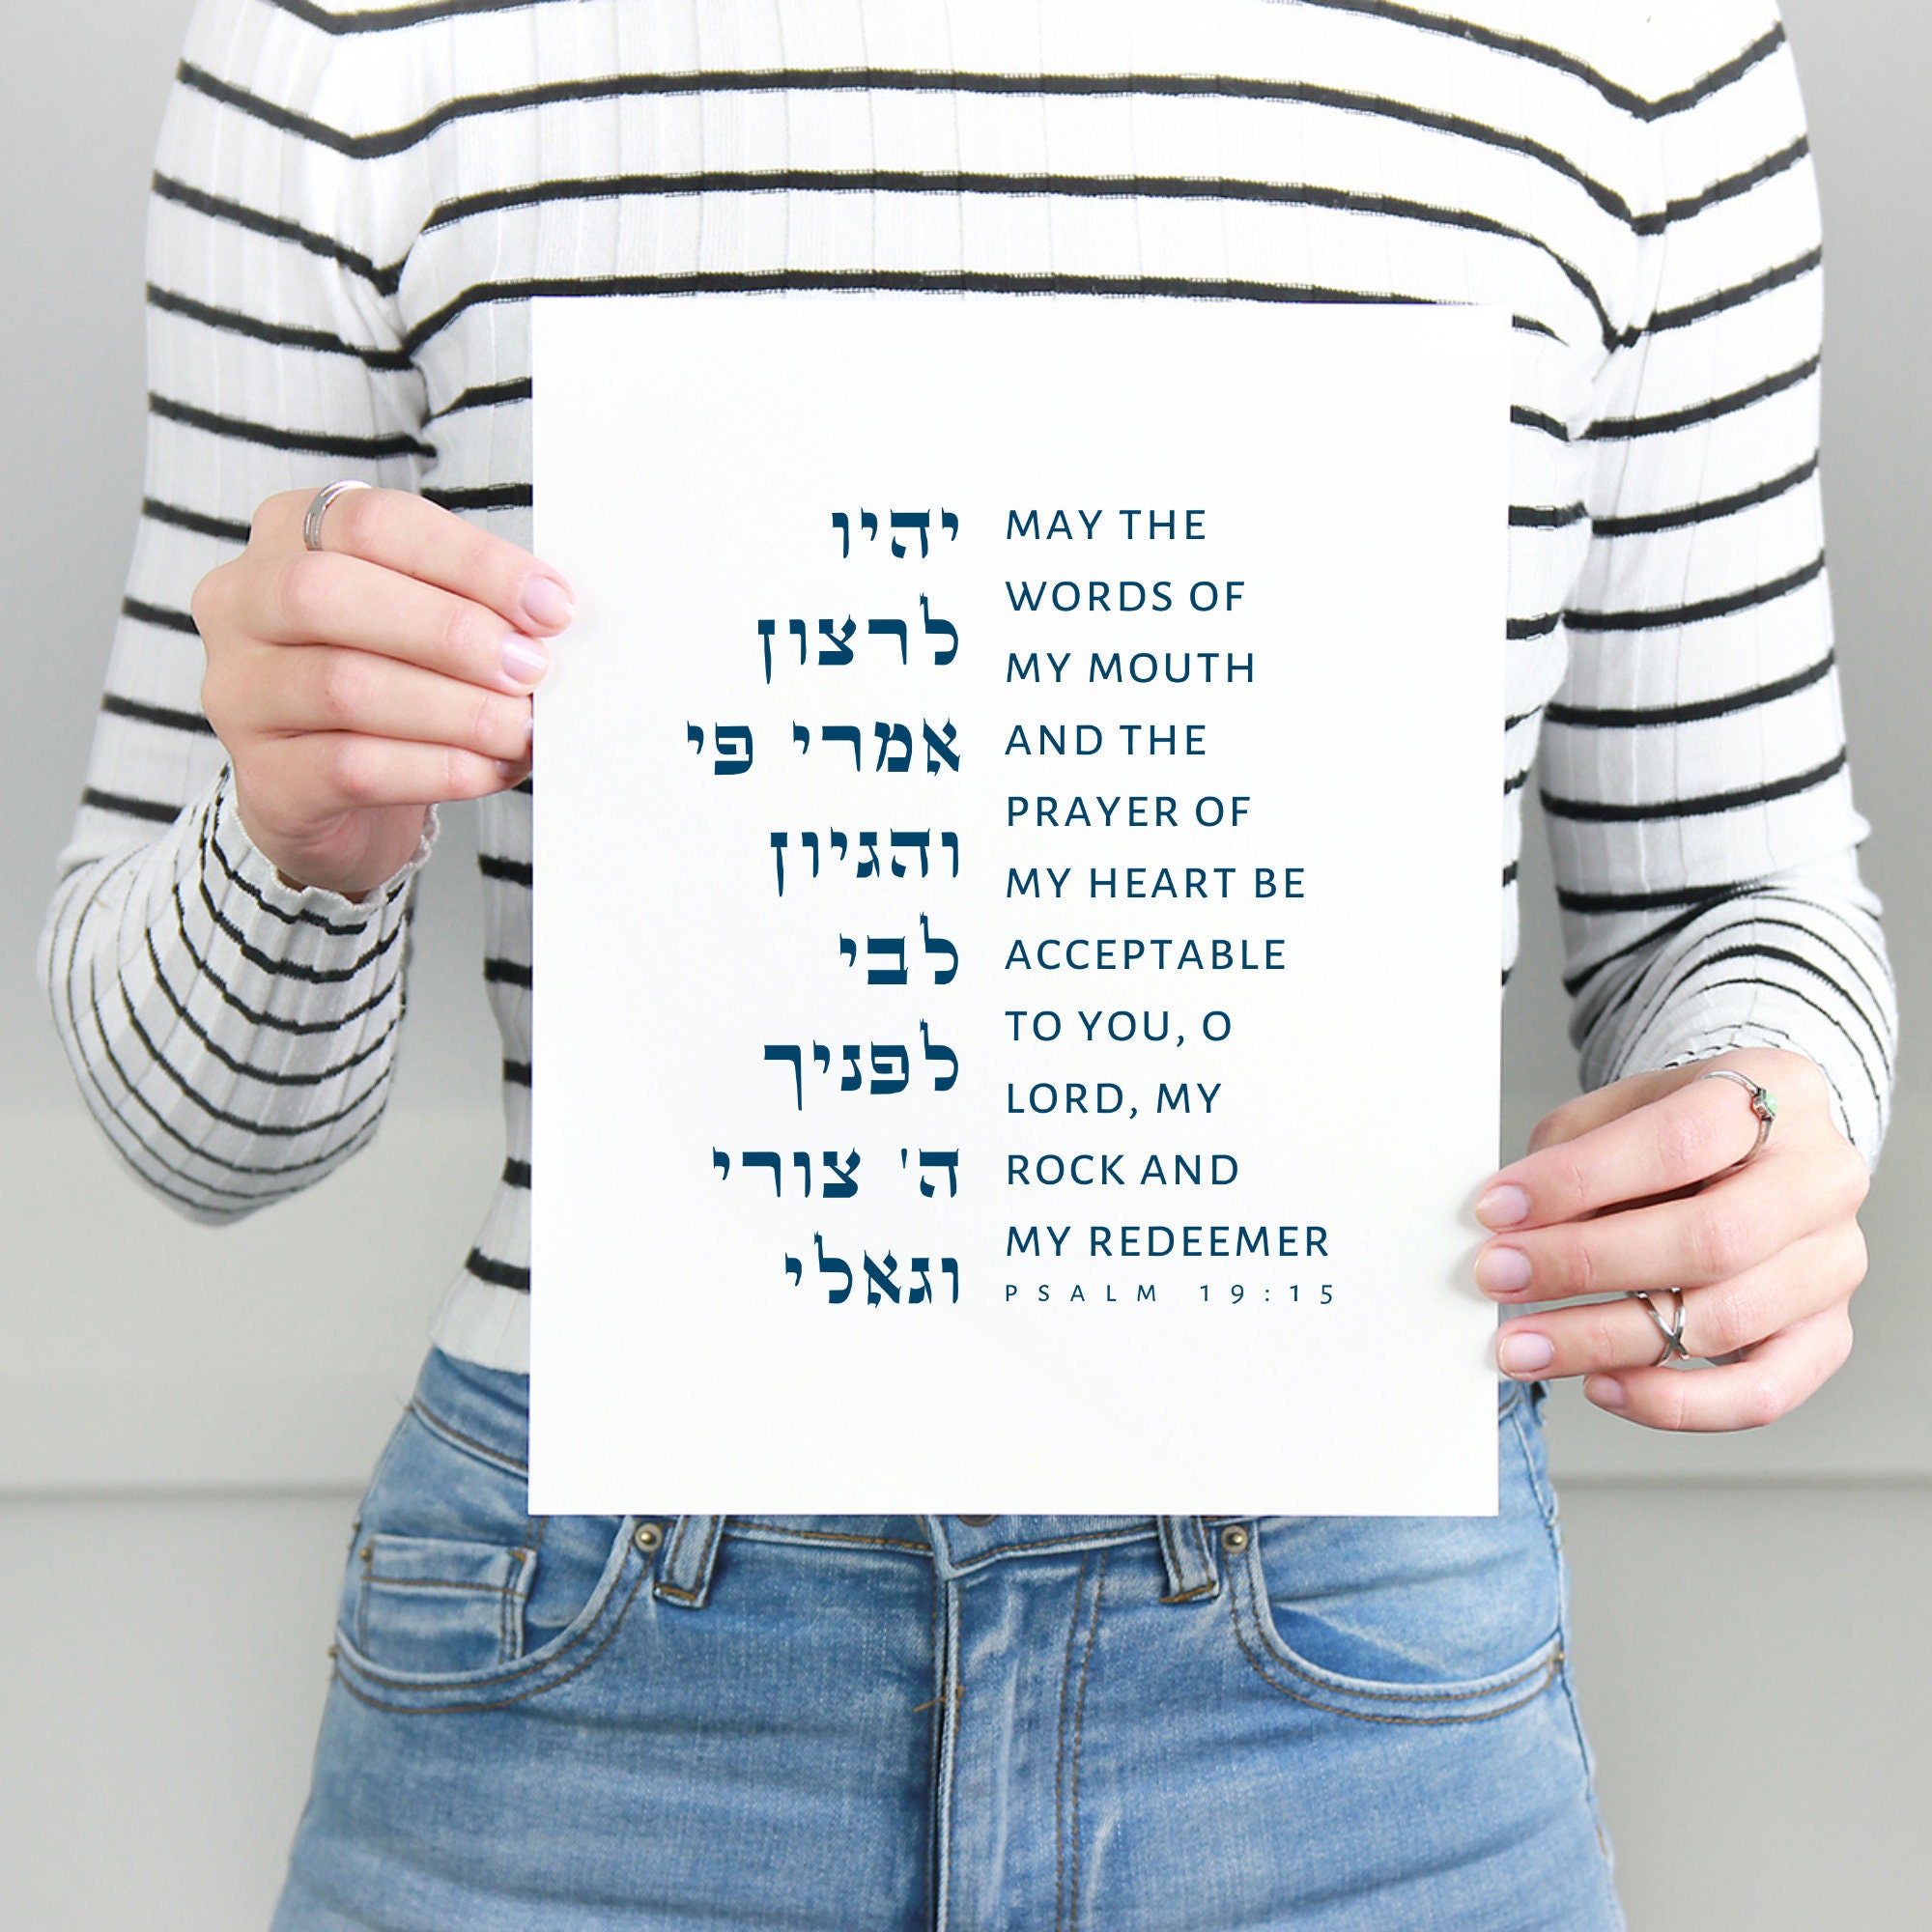 יהיו
לרצון
אמרי פי
והגיון
לבי
לפניך
ה' צורי
וגאלי
MAY THE
WORDS OF
MY MOUTH
AND THE
PRAYER OF
MY HEART BE
ACCEPTABLE
TO YOU, O
LORD, MY
ROCK AND
MY REDEEMER
PSALM 19:15